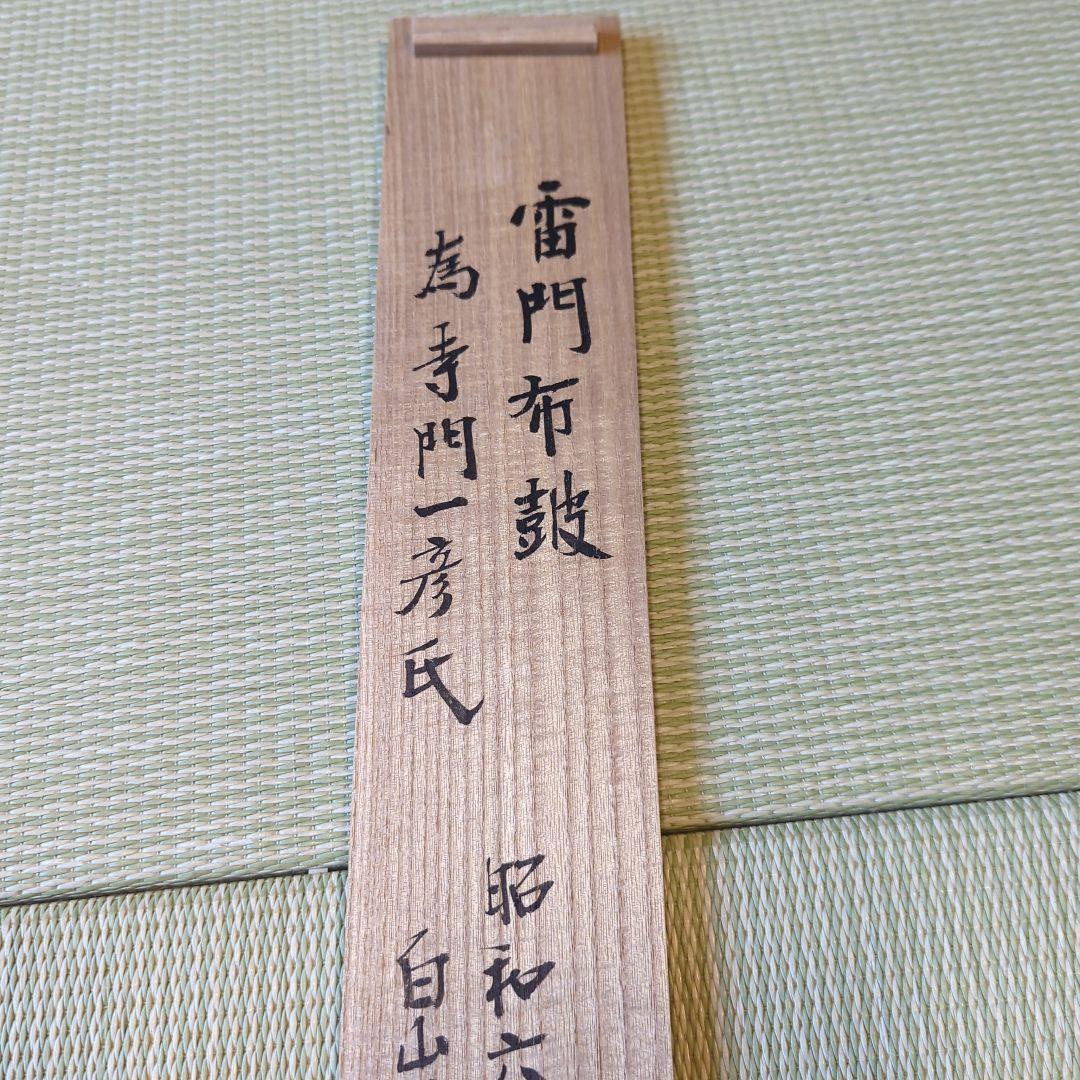 雷門布鼓
昭和六
為寺門一彦氏
白山